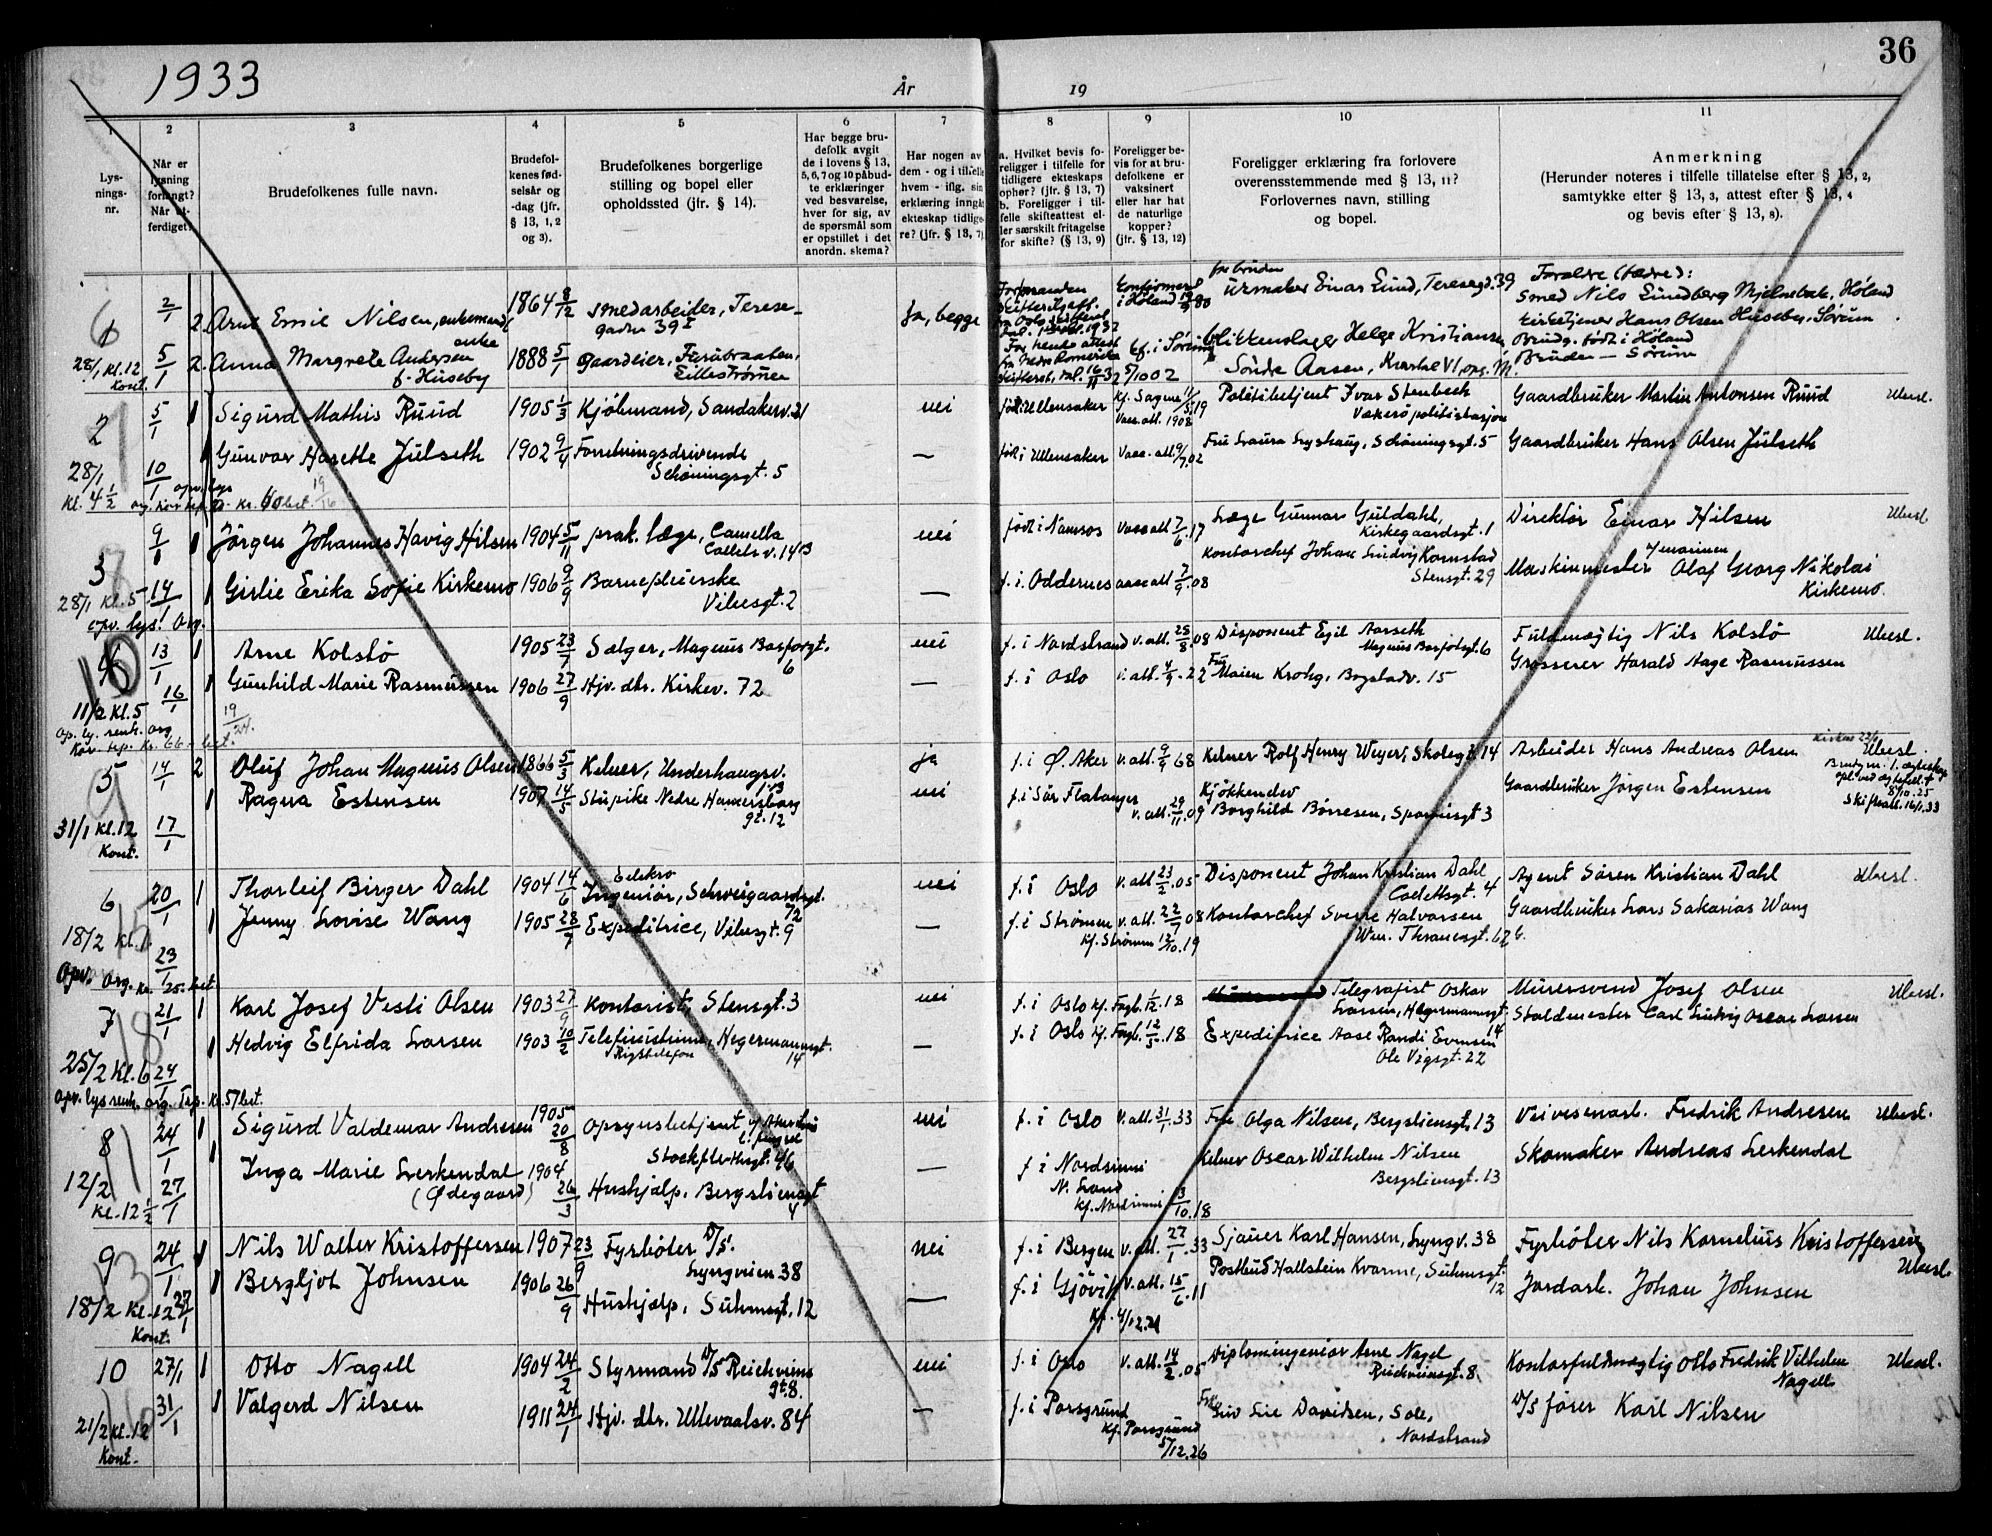 1933
År
19
36
1
2
3
4
5
6
7
8
9
10
11
Lys-
nings-
nr.
Når er
lysning
forlangt?
Når ut-
ferdiget?
Brudefolkenes fulle navn.
Brudefol-
kenes fød-
selsår og
-dag (jfr.
§ 13, 1, 2
og 3).
Brudefolkenes borgerlige
stilling og bopel eller
opholdssted (jfr. § 14).
Har begge bru-
defolk avgit
de i lovens § 13,
5, 6, 7 og 10 påbud-
te erklæringer
ved besvarelse,
hver for sig, av
de spørsmål som
er opstillet i det
anordn. skema?
Har nogen av
dem - og i tilfelle
hvem - iflg. sin
erklæring inngått
ekteskap tidlige-
re? (jfr. § 13, 7).
a. Hvilket bevis fo-
religger i tilfelle for
tidligere ekteskaps
ophør? (jfr. § 13, 7)
b. Foreligger i til-
felle skifteattest el-
ler særskilt fritagelse
for skifte? (§ 13, 9)
Foreligger be-
vis for at bru-
defolkene er
vaksinert
eller har hat
de naturlige
kopper?
(jfr. § 13, 12)
Foreligger erklæring fra forlovere
overensstemmende med § 13, 11?
Forlovernes navn, stilling
og bopel.
Anmerkning
(Herunder noteres i tilfelle tillatelse efter § 13, 2,
samtykke efter § 13, 3, attest efter § 13, 4
og bevis efter § 13, 8).
1
2/1
2
Arne Emil Nilsen, enkemand
1864 8/12
smedarbeider, Terese-
gadn 39 I
Ja, begge
Konfirmert
i Höland
for bruden
Urmaker Einar Lund, Teresegd. 39
Foreldre (fædre):
Smed Nils Lundberg Mjelnebak, Höland
Kirketjener Hans Olsen Huseby, Sörum
28/1 kl. 12
Kont.
5/1
2
enke
Anna Margrete Andersen
f. Huseby
1888 5/1
gaardeier, Furubraaten,
Lilleströmen
kf. i Sörum
5/10 02
blikkenslager Helge Kristiansen
Söndre Aasen, Kvartal VI, opg. M.
Brudg. født i Höland
Bruden — Sörum
2
5/1
1
Sigurd Mathis Ruud
1905 1/3
Kjöbmand, Sandakerv. 21
nei
född i Ullensaker
Vacc. att. 1908
Politibetjent Ivar Stenbeck
Vækerö politistasjon
Gaardbruker Martin Antonsen Ruud
Ubesl.
28/1
kl. 4 1/2
10/1
1
Gunvor Harette Julseth
1902 9/4
Forretningsdrivende
Schöningsgt. 5
—
född i Ullensaker
Vacc. att. 9/7 02
Fru Laura Lyshaug, Schöningsgt. 5
Gaardbruker Hans Olsen Julseth
3
9/1
1
Jörgen Johannes Havig Hilsen
1904 5/11
prak. læge, Camilla
Colletts v. 14 B
nei
född i Namsos
Vacc att 7/6 17
Læge Gunnar Guldahl,
Kirkegaardsgt. 1
Direktör Einar Hilsen
Ubesl
28/1 Kl. 5
opv. lys. Org.
14/1
1
Girlie Erika Sofie Kirkemo
1906 9/9
Barnepleierske
Vibesgt. 2
—
f. i. Oddernes
vacc att 7/9 08
Kontorchef Johan Ludvig Kornstad
Stensgt. 29
i marinen
Maskinmester Olaf Georg Nikolai
Kirkemo.
4
13/1
1
Arne Kolstö
1905 23/7
Sælger, Magnus Barforgt.
6
nei
f. i Nordstrand
v. att. 25/8 08
Disponent Egil Aarseth
Magnus Barfotsgt. 6
Fuldmægtig Nils Kolstö
Ubesl.
11/2 Kl. 5
16/1
1
Gunhild Marie Rasmussen
1906 27/9
Hjv. dtr. Kirkev. 72
—
f. i Oslo
v. att. 4/9 . 22
Fru
Maien Krohg, Bogstadv. 15
Grosserer Harald Aage Rasmussen
19/1 24.
5
14/1
2
Oluf Johan Magnus Olsen
1866 5/3
Kelner, Underhaugsv.
13
ja
f. i Ø. Aker
v. att. 9/9 68
Kelner Rolf Henry Weyer, Skolegt. 14
Arbeider Hans Andreas Olsen
Ubesl.
Skifteatt. 16/1.33
31/1 kl. 12
Kont.
17/1
1
Ragna Estensen
1907 14/5
Stupike Nedre Hammersborg
gt. 12
nei
f. i Sör Flatanger
v. att. 29/11 09
Kjökkendev
Borghild Börresen, Sporveisgt 3
Gaardbruker Jörgen Estensen
6
20/1
1
Thorleif Birger Dahl
1904 14/6
Elektro
Ingeniör, Schweigaardsgt.
72
nei
f. i Oslo
v. att 23/2 . 05
Disponent Johan Kristian Dahl
Collettsgt. 4
Agent Sören Kristian Dahl
Ubesl.
18/2 Kl. 1.
Opv. Org. Kr. 25.- bet.
23/1
1
Jenny Lovise Wang
1905 28/7
Expeditrice, Vibesgt. 9
—
f. i Strömmen
v. att. 22/7 08
kf. Strömmen 12/10. 19
Kontorchef Sverre Halvorsen
Wm. Thranesgt. 67 b.
Gaardbruker Lars Sakarias Wang
7
21/1
1
Karl Josef Vesti Olsen
1903 27/9
Kontorist, Stensgt. 3
nei
f. i Oslo kf. Fagb. 1/12. 18
Telegrafist Oskar
Larsen, Hegermannsgt.
14
Murersvend Josef Olsen
Ubesl.
25/2 Kl. 6
24/1
1
Hedvig Elfrida Larsen
1903 10/2
Telefonistinne, Hegermannsgt.
Rigstelefon 14
—
f. i Oslo kf. Fagb. 12/5. 18
Expeditrice Aase Randi Evensen
Ole Vigsgt. 22
Staldmester Carl Ludvig Oscar Larsen
opv. lys renh. org. Trp. Kr. 57 bet.
8
24/1
1
Sigurd Valdemar Andresen
1905
20/8
Opsynsbetjent v/ Akershus
l. fengsel
Stockfleths gt. 46
nei
f. i Oslo
v. att. 31/1 . 33
Fru Olga Nilsen, Bergsliensgt. 13
Veivesenarb. Fredrik Andresen
Ubesl.
12/2
Kl. 12 1/2
27/1
1
Inga Marie Lerkendal
(Ødegaard)
1904
26/3
Hushjelp, Bergsliensgt
4
—
f. i Nordsinni
N. Land
kf. Nordsinni 3/10. 18
Kelner Oscar Wilhelm Nilsen
Bergsliensgt. 13
Skomaker Andreas Lerkendal
9
24/1
1
Nils Walter Kristoffersen
1907 23/9
Fyrböter D/S.
Lyngveien 38
nei
f. i Bergen
v. att. 27/1 . 33
Sjauer Karl Hansen, Lyngv. 38
Fyrböter Nils Kornelius Kristoffersen
Ubesl
18/2 Kl. 12
Kont.
27/1
1
Bergljot Johnsen
1906 26/9
Hushjelp, Suhmsgt. 12
—
f. i Gjövik
v. att. 15/6 . 11
Kf. 4/12. 21
Postbud Hallstein Kvarme, Suhmsgt.
12
Jordarb. Johan Johnsen
10
27/1
1
Otto Nagell
1904 24/2
Styrmand D/S Reichweins
gt. 8.
nei
f. i Oslo
v. att. 14/2 . 05
Diplomingeniör Arne Nagel
Reichweinsgt. 8.
Kontorfuldmægtig Otto Fredrik Vilhelm
Nagell
Ubesl.
21/2 kl. 12
Kont.
31/1
1
Valgerd Nilsen
1911 24/1
Hjv. dtr. Ullevaalsv. 84
—
f. i Porsgrund
kf. Porsgrund
5/12. 26
Fru Davidsen, Sole,
Nordstrand
D/S förer Karl Nilsen